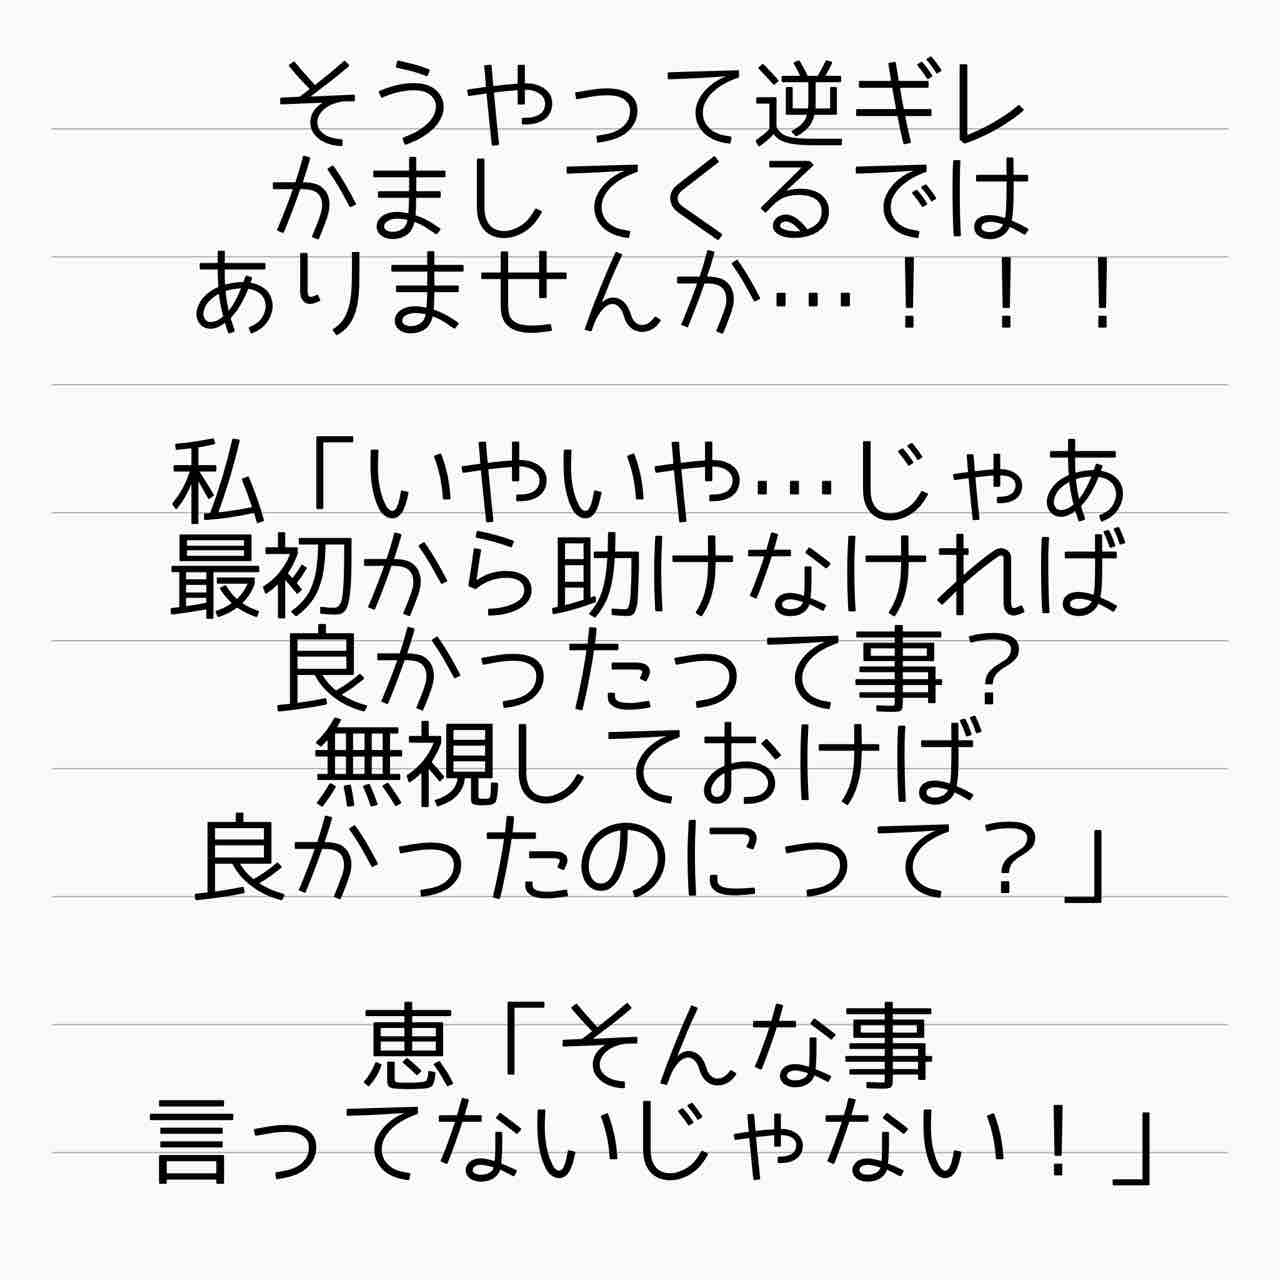 そうやって逆ギレ
かましてくるでは
ありませんか…！！！
私「いやいや…じゃあ
最初から助けなければ
良かったって事？
無視しておけば
良かったのにって？」
恵「そんな事
言ってないじゃない！」